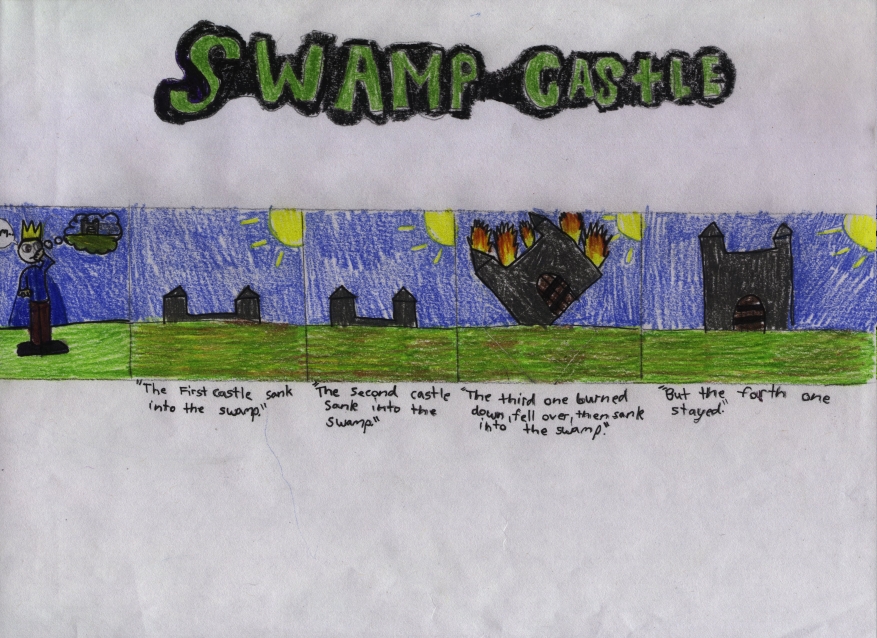 SWAMP CASTLE
"The First castle sank
into the swamp."
"The Second castle
Sank into the
swamp."
"The third one burned
down, fell over, then sank
into the swamp."
"But the forth one
stayed."